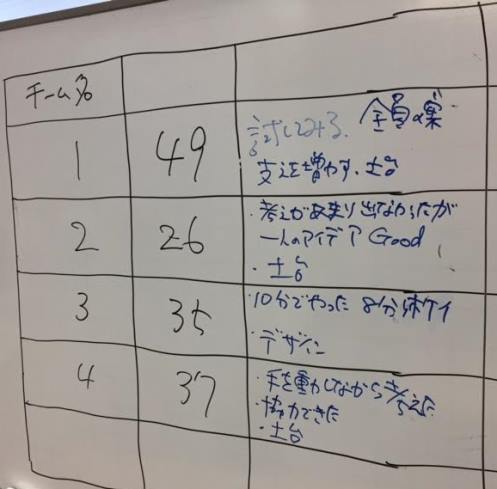 チーム名
1 49 試してみる、全員の案
支えを増やす、土台
2 26 ・考えがあまり出なかったが
一人のアイデア Good
・土台
3 35 ・10分でやった 8分休ケイ
・デザイン
4 37 ・手を動かしながら考えた
・協力できた
・土台